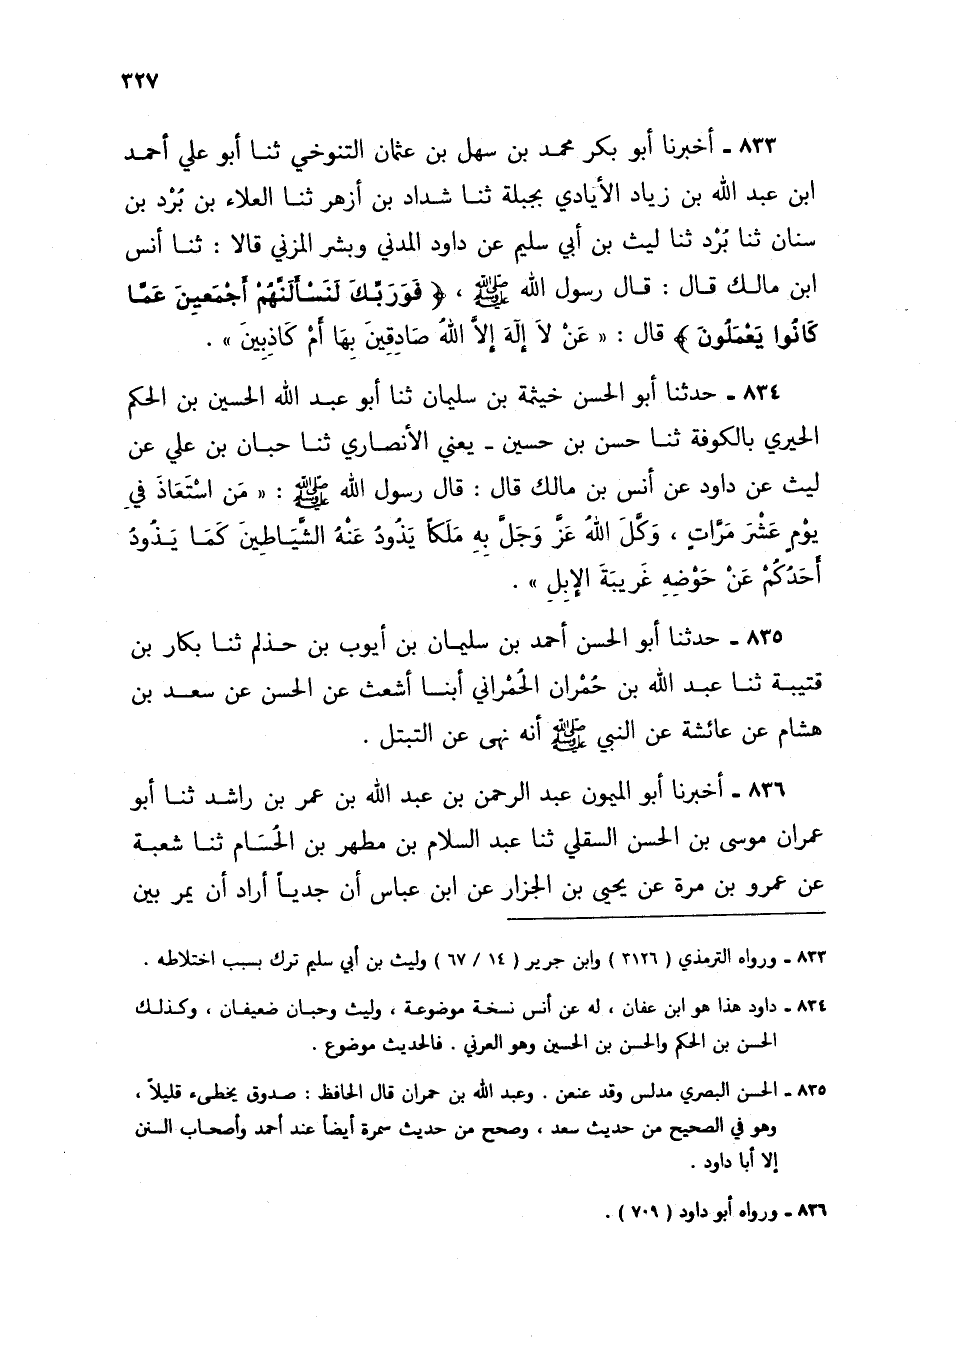 ٣٢٧
٨٣٣ ـ أخبرنا أبو بكر محمد بن سهل بن عثمان التنوخي ثنا أبو علي أحمد
ابن عبد الله بن زياد الأيادي بجبلة ثنا شداد بن أزهر ثنا العلاء بن بُرْد بن
سنان ثنا بُرْد ثنا ليث بن أبي سليم عن داود المدني وبشر المزني قالا : ثنا أنس
ابن مالك قال : قال رسول الله ﷺ ، ﴿ فَوَرَبِّكَ لَنَسْأَلَنَّهُمْ أَجْمَعِينَ عَمَّا
كَانُوا يَعْمَلُونَ ﴾ قال : « عَنْ لاَ إِلَهَ إِلاَّ اللهُ صَادِقِينَ بِهَا أَمْ كَاذِبِينَ » .
٨٣٤ ـ حدثنا أبو الحسن خيثمة بن سليمان ثنا أبو عبد الله الحسين بن الحكم
الحيري بالكوفة ثنا حسن بن حسين ـ يعني الأنصاري ثنا حبان بن علي عن
ليث عن داود عن أنس بن مالك قال : قال رسول الله ﷺ : « مَن اسْتَعَاذَ فِي
يوْمٍ عَشْرَ مَرَّاتٍ ، وَكَّلَ اللهُ عَزَّ وَجَلَّ بِهِ مَلَكاً يَذُودُ عَنْهُ الشَّيَاطِينَ كَمَا يَذُودُ
أَحَدُكُمْ عَنْ حَوْضِهِ غَرِيبَةَ الإِبِلِ » .
٨٣٥ ـ حدثنا أبو الحسن أحمد بن سليمان بن أيوب بن حذلم ثنا بكار بن
قتيبة ثنا عبد الله بن حُمْران الحُمْراني أبنا أشعث عن الحسن عن سعد بن
هشام عن عائشة عن النبي ﷺ أنه نهى عن التبتل .
٨٣٦ ـ أخبرنا أبو الميمون عبد الرحمن بن عبد الله بن عمر بن راشد ثنا أبو
عمران موسى بن الحسن السقلي ثنا عبد السلام بن مطهر بن الحُسَام ثنا شعبة
عن عمرو بن مرة عن يحيى بن الجزار عن ابن عباس أن جدياً أراد أن يمر بين
٨٣٣ ـ ورواه الترمذي ( ٣١٢٦ ) وابن جرير ( ١٤ / ٦٧ ) وليث بن أبي سليم ترك بسبب اختلاطه .
٨٣٤ ـ داود هذا هو ابن عفان ، له عن أنس نسخة موضوعة ، وليث وحبان ضعيفان ، وكذلك
الحسن بن الحكم والحسن بن الحسين وهو العرني . فالحديث موضوع .
٨٣٥ ـ الحسن البصري مدلس وقد عنعن . وعبد الله بن حمران قال الحافظ : صدوق يخطىء قليلاً ،
وهو في الصحيح من حديث سعد ، وصحح من حديث سمرة أيضاً عند أحمد وأصحاب السنن
إلا أبا داود .
٨٣٦ ـ ورواه أبو داود ( ٧٠٩ ) .